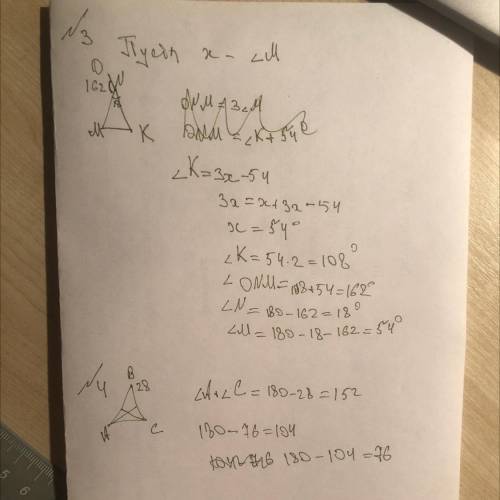 №3
Пусть x - ∠M
O
N
162
M
K
ONM = 3∠M
ONM = ∠K + 54
∠K = 3x - 54
3x = x + 3x - 54
x = 54°
∠K = 54·2 = 108°
∠ONM = 108 + 54 = 162°
∠N = 180 - 162 = 18°
∠M = 180 - 18 - 162 = 54°
№4
B
28
A
C
∠A + ∠C = 180 - 28 = 152
180 - 76 = 104
180 - 104 = 76
5
6